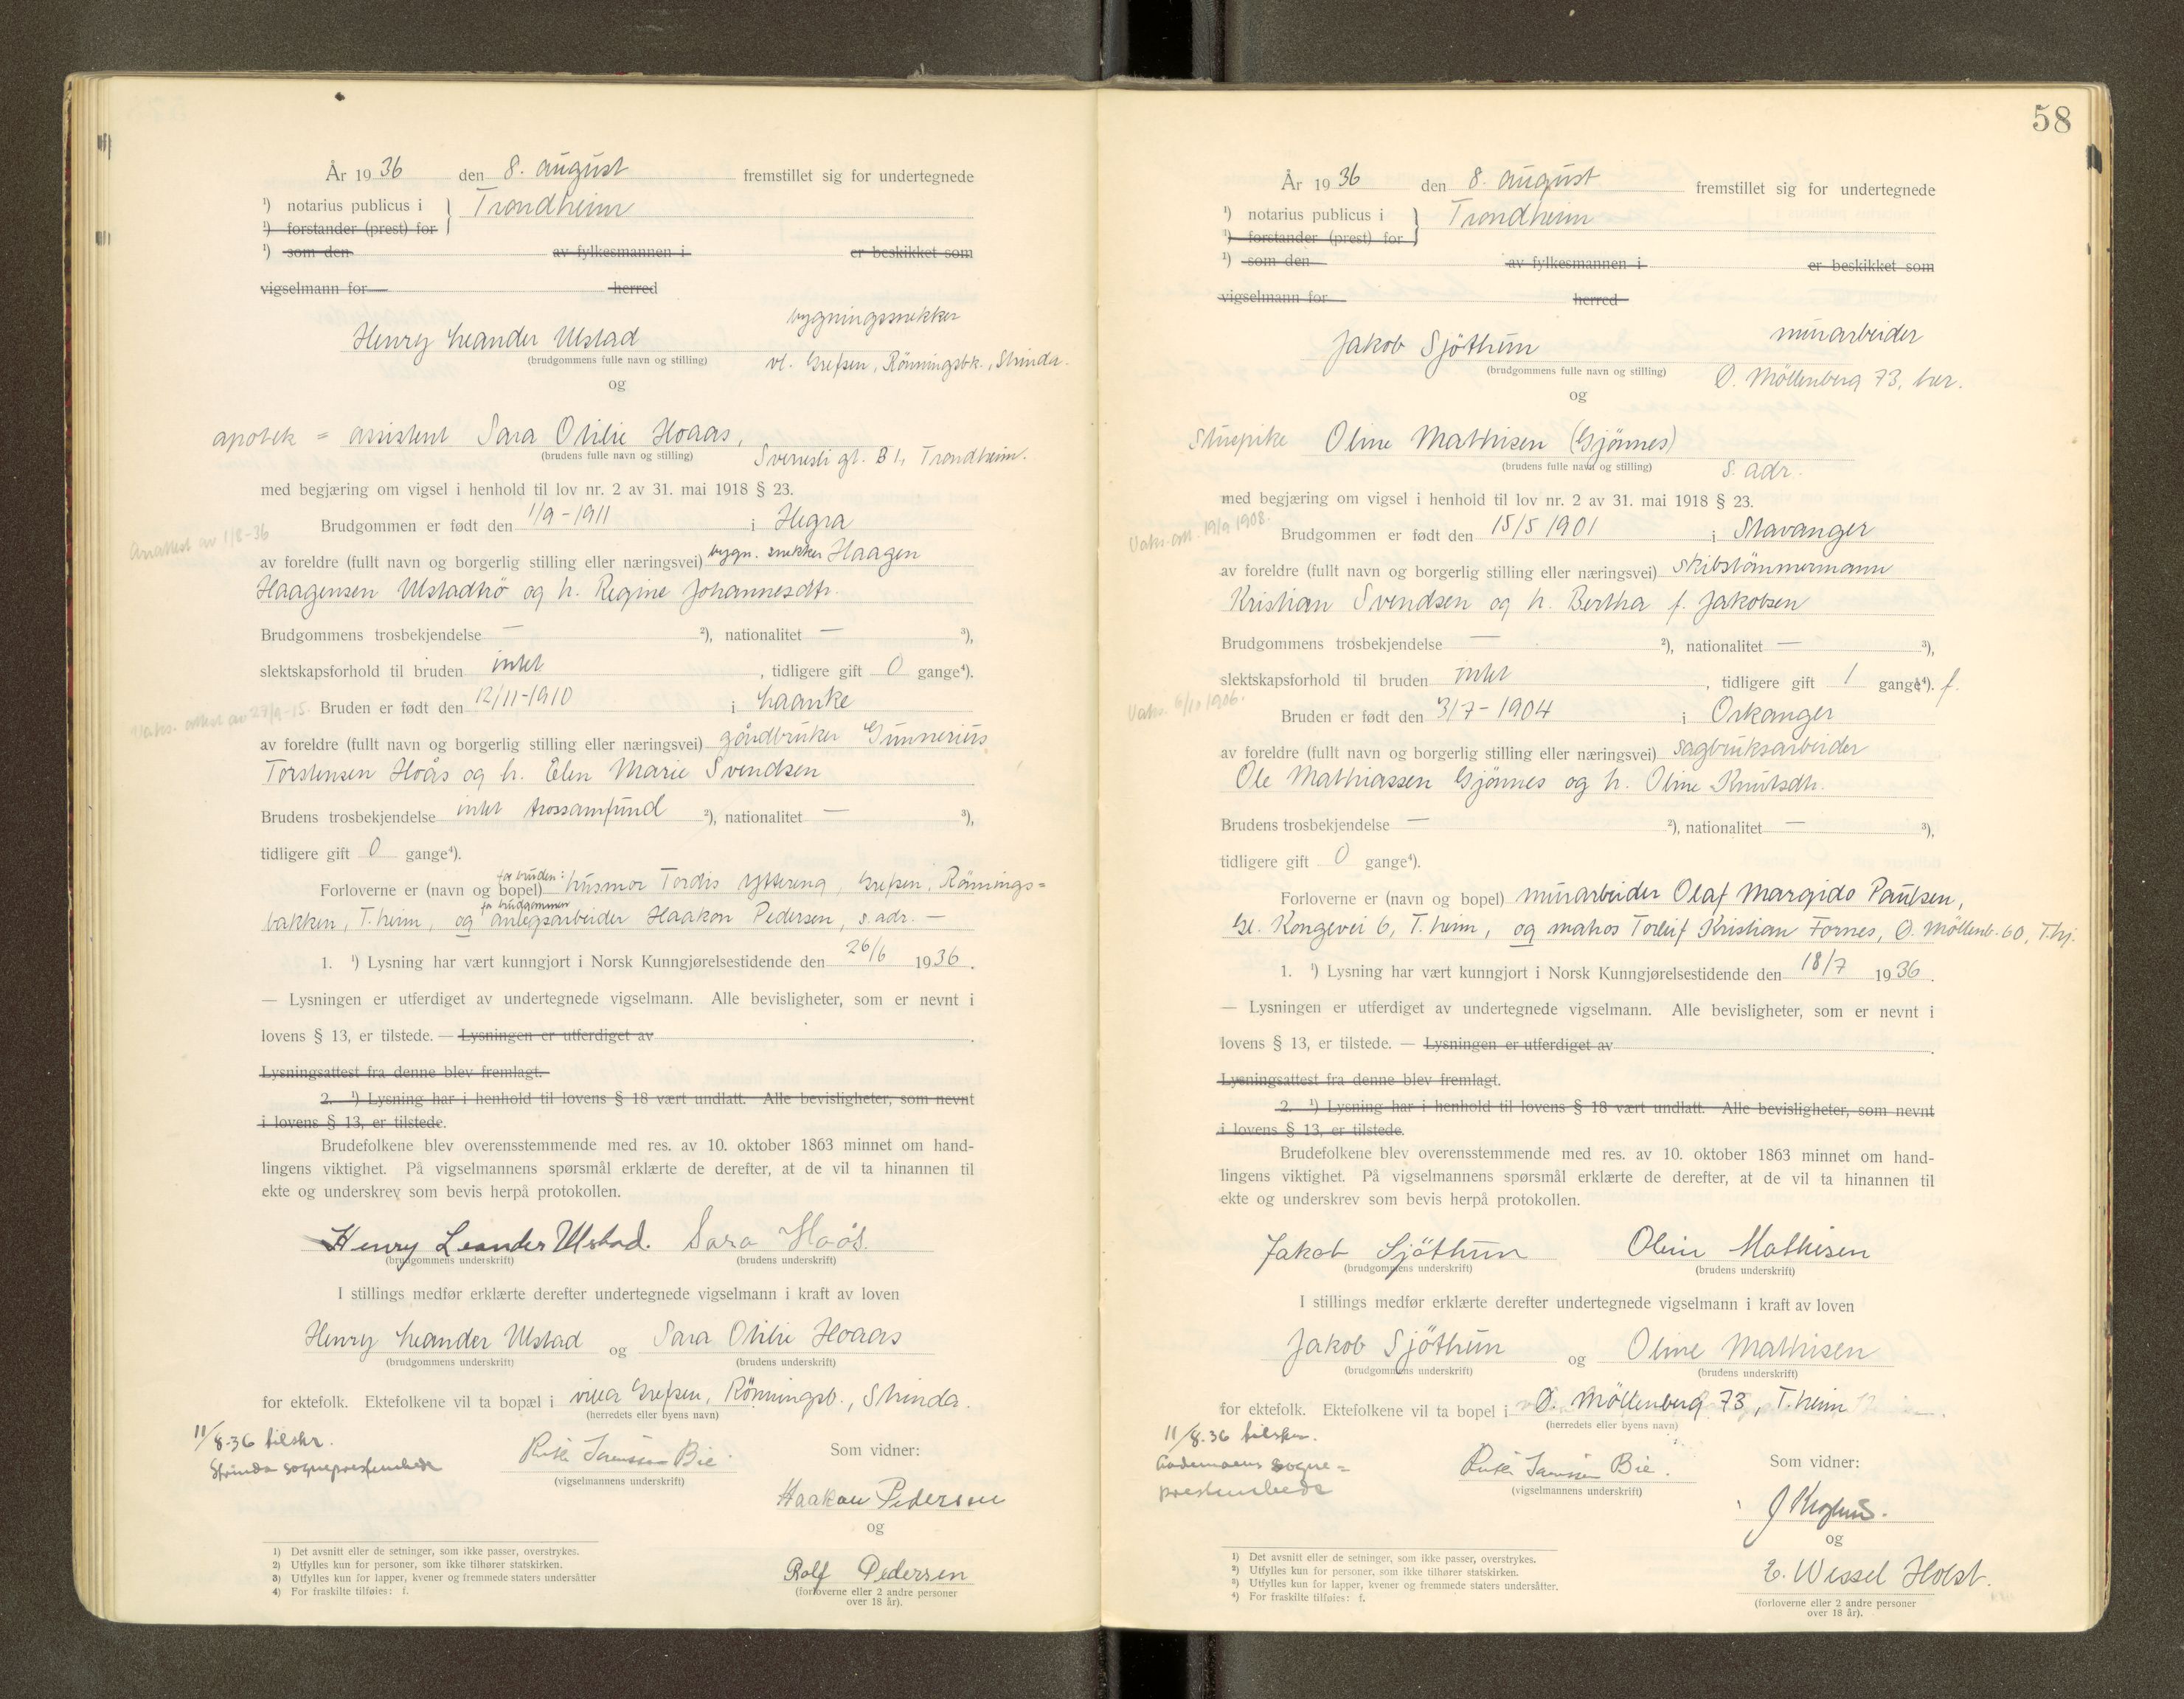 År 1936 den 8. august fremstillet sig for undertegnede
¹) notarius publicus i } Trondheim
¹) forstander (prest) for
¹) som den av fylkesmannen i er beskikket som
vigselmann for herred
bygningssnekker
Henry Leander Ulstad
(brudgommens fulle navn og stilling)
vl. Grefsen, Rönningsbk., Strinda.
og
apotek = assistent Sara Otilie Hoaas,
(brudens fulle navn og stilling)
Sverresli gt. B 1, Trondheim.
med begjæring om vigsel i henhold til lov nr. 2 av 31. mai 1918 § 23.
Brudgommen er født den 1/9-1911 i Hegra
av 1/8-36
av foreldre (fullt navn og borgerlig stilling eller næringsvei) bygn. snekker Haagen
Haagensen Ulstadhö og h. Regine Johannesdtr.
Brudgommens trosbekjendelse — ²), nationalitet — ³),
slektskapsforhold til bruden intet, tidligere gift 0 gange⁴).
Vaks. attest av 27/9-15.
Bruden er født den 12/11-1910 i Laanke
av foreldre (fullt navn og borgerlig stilling eller næringsvei) gårdbruker Gunnerius
Torstensen Hoås og h. Elen Marie Svendsen
Brudens trosbekjendelse intet trossamfund ²), nationalitet — ³),
tidligere gift 0 gange⁴).
for bruden:
Forloverne er (navn og bopel) husmor Tordis Yttereng, Grefsen, Rönnings=
for brudgommen
bakken, T.heim, og anlegsarbeider Haakon Pedersen, s. adr. —
1. ¹) Lysning har vært kunngjort i Norsk Kunngjørelsestidende den 26/6 1936.
— Lysningen er utferdiget av undertegnede vigselmann. Alle bevisligheter, som er nevnt i
lovens § 13, er tilstede. — Lysningen er utferdiget av .
Lysningsattest fra denne blev fremlagt.
2. ¹) Lysning har i henhold til lovens § 18 vært undlatt. Alle bevisligheter, som nevnt
i lovens § 13, er tilstede.
Brudefolkene blev overensstemmende med res. av 10. oktober 1863 minnet om hand-
lingens viktighet. På vigselmannens spørsmål erklærte de derefter, at de vil ta hinannen til
ekte og underskrev som bevis herpå protokollen.
Henry Leander Ulstad. Sara Hoås.
(brudgommens underskrift) (brudens underskrift)
I stillings medfør erklærte derefter undertegnede vigselmann i kraft av loven
Henry Leander Ulstad og Sara Otilie Hoaas
(brudgommens underskrift) (brudens underskrift)
for ektefolk. Ektefolkene vil ta bopæl i villa Grefsen, Rönningsb., Strinda.
(herredets eller byens navn)
11/8-36 tilskr.
Strinda sogneprestembede
Bie.
(vigselmannens underskrift)
Som vidner:
Haakon Pedersen
og
Rolf Pedersen
(forloverne eller 2 andre personer
over 18 år).
1) Det avsnitt eller de setninger, som ikke passer, overstrykes.
2) Utfylles kun for personer, som ikke tilhører statskirken.
3) Utfylles kun for lapper, kvener og fremmede staters undersåtter
4) For fraskilte tilføies: f.
58
År 1936 den 8. august fremstillet sig for undertegnede
¹) notarius publicus i } Trondheim
¹) forstander (prest) for
¹) som den av fylkesmannen i er beskikket som
vigselmann for herred
murarbeider
Jakob Sjöthun
(brudgommens fulle navn og stilling)
Ö. Möllenberg 73, her.
og
Stuepike Oline Mathisen (Gjönnes)
(brudens fulle navn og stilling)
s. adr.
med begjæring om vigsel i henhold til lov nr. 2 av 31. mai 1918 § 23.
Vaks. att. 19/9 1908.
Brudgommen er født den 15/5 1901 i Stavanger
av foreldre (fullt navn og borgerlig stilling eller næringsvei) skibstömmermann
Kristian Svendsen og h. Bertha f. Jakobsen
Brudgommens trosbekjendelse — ²), nationalitet — ³),
slektskapsforhold til bruden intet, tidligere gift 1 gange⁴). f.
Vaks. 6/10 1906.
Bruden er født den 3/7-1904 i Orkanger
av foreldre (fullt navn og borgerlig stilling eller næringsvei) sagbruksarbeider
Ole Mathiassen Gjönnes og h. Oline Knutsdtr.
Brudens trosbekjendelse — ²), nationalitet — ³),
tidligere gift 0 gange⁴).
Forloverne er (navn og bopel) murarbeider Olaf Margido Paulsen,
Gl. Kongevei 6, T.heim, og matros Torleif Kristian Fornes, Ö. Möllenb. 60, T.hj.
1. ¹) Lysning har vært kunngjort i Norsk Kunngjørelsestidende den 18/7 1936.
— Lysningen er utferdiget av undertegnede vigselmann. Alle bevisligheter, som er nevnt i
lovens § 13, er tilstede. — Lysningen er utferdiget av .
Lysningsattest fra denne blev fremlagt.
2. ¹) Lysning har i henhold til lovens § 18 vært undlatt. Alle bevisligheter, som nevnt
i lovens § 13, er tilstede.
Brudefolkene blev overensstemmende med res. av 10. oktober 1863 minnet om hand-
lingens viktighet. På vigselmannens spørsmål erklærte de derefter, at de vil ta hinannen til
ekte og underskrev som bevis herpå protokollen.
Jakob Sjöthun Oline Mathisen
(brudgommens underskrift) (brudens underskrift)
I stillings medfør erklærte derefter undertegnede vigselmann i kraft av loven
Jakob Sjöthun og Oline Mathisen
(brudgommens underskrift) (brudens underskrift)
for ektefolk. Ektefolkene vil ta bopel i Ö. Möllenberg 73, T.heim
(herredets eller byens navn)
11/8.36 tilskr.
Bademoens sogne=
prestembede
Bie.
(vigselmannens underskrift)
Som vidner:
og
E. Wessel Holst.
(forloverne eller 2 andre personer
over 18 år).
¹) Det avsnitt eller de setninger, som ikke passer, overstrykes.
²) Utfylles kun for personer, som ikke tilhører statskirken.
³) Utfylles kun for lapper, kvener og fremmede staters undersåtter.
⁴) For fraskilte tilføies: f.